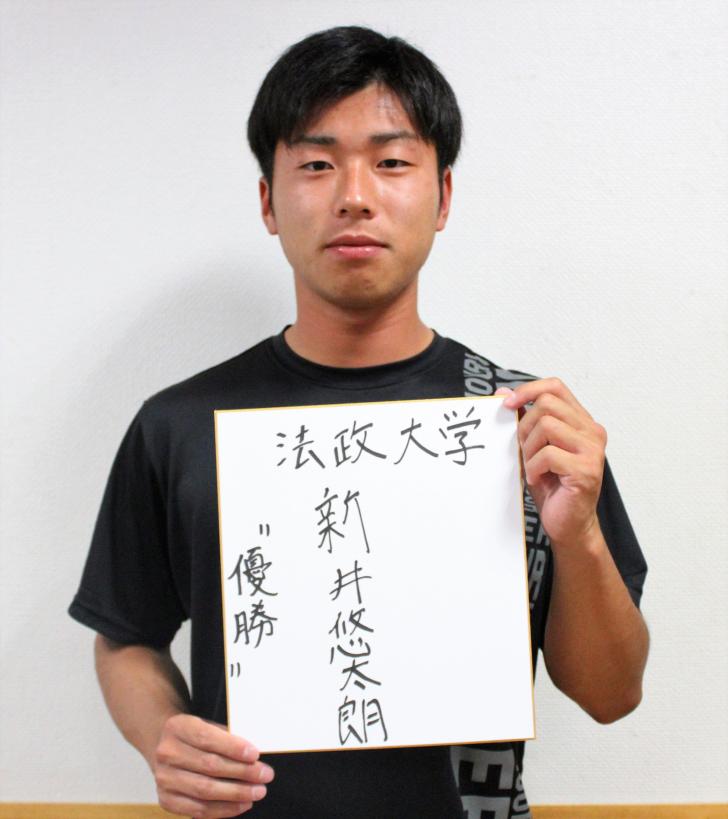 法政大学
新井悠太朗
"優勝"